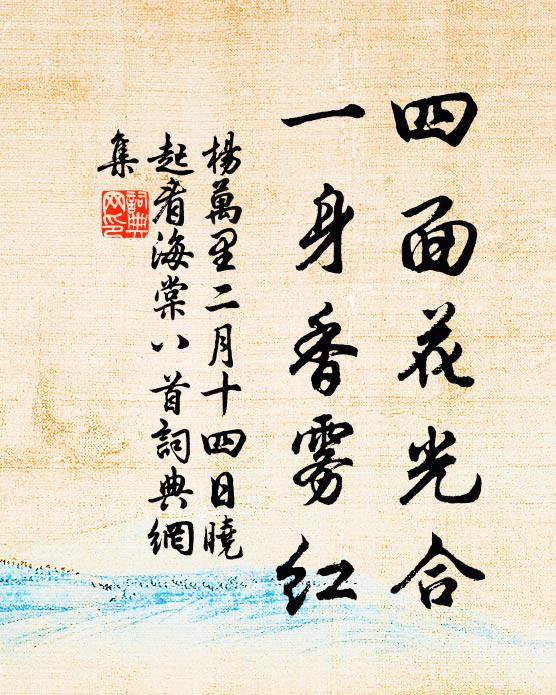 四面花光合
一身香雾红
楊萬里二月十四日曉
起看海棠八首詞典網
集
詞典
网印